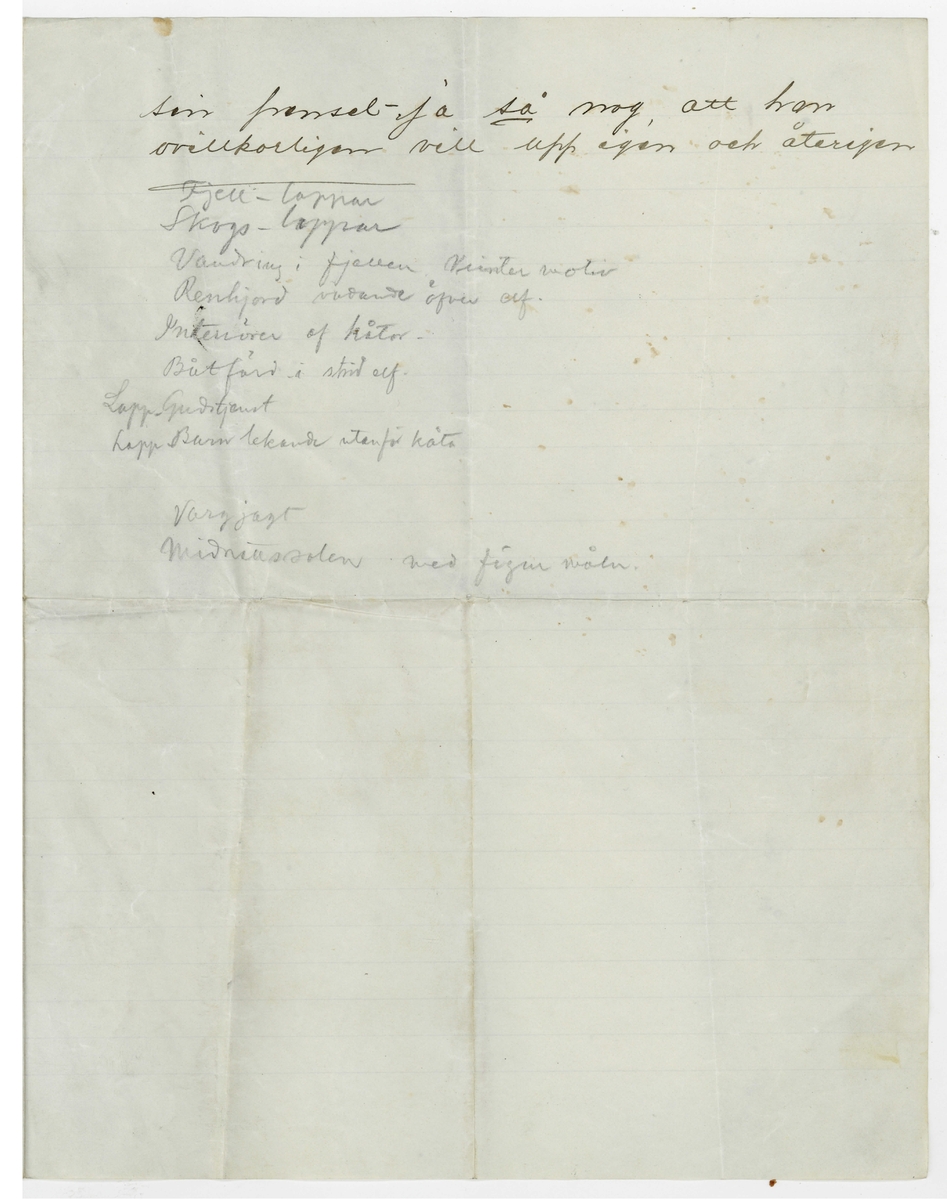 sin frensel - ja så nog, att han
ovillkorligen vill upp igen och återigen
Fjell-lappar
Skogs-lappar
Vandring i fjällen Vinter motiv
Renhjord vadande öfver elf.
Interiörer af kåtor -
Båtfärd i strid elf.
Lapp Gudstjenst
Lapp Barn lekande utanför kåta
Vargjagt
Midnattssolen med figur